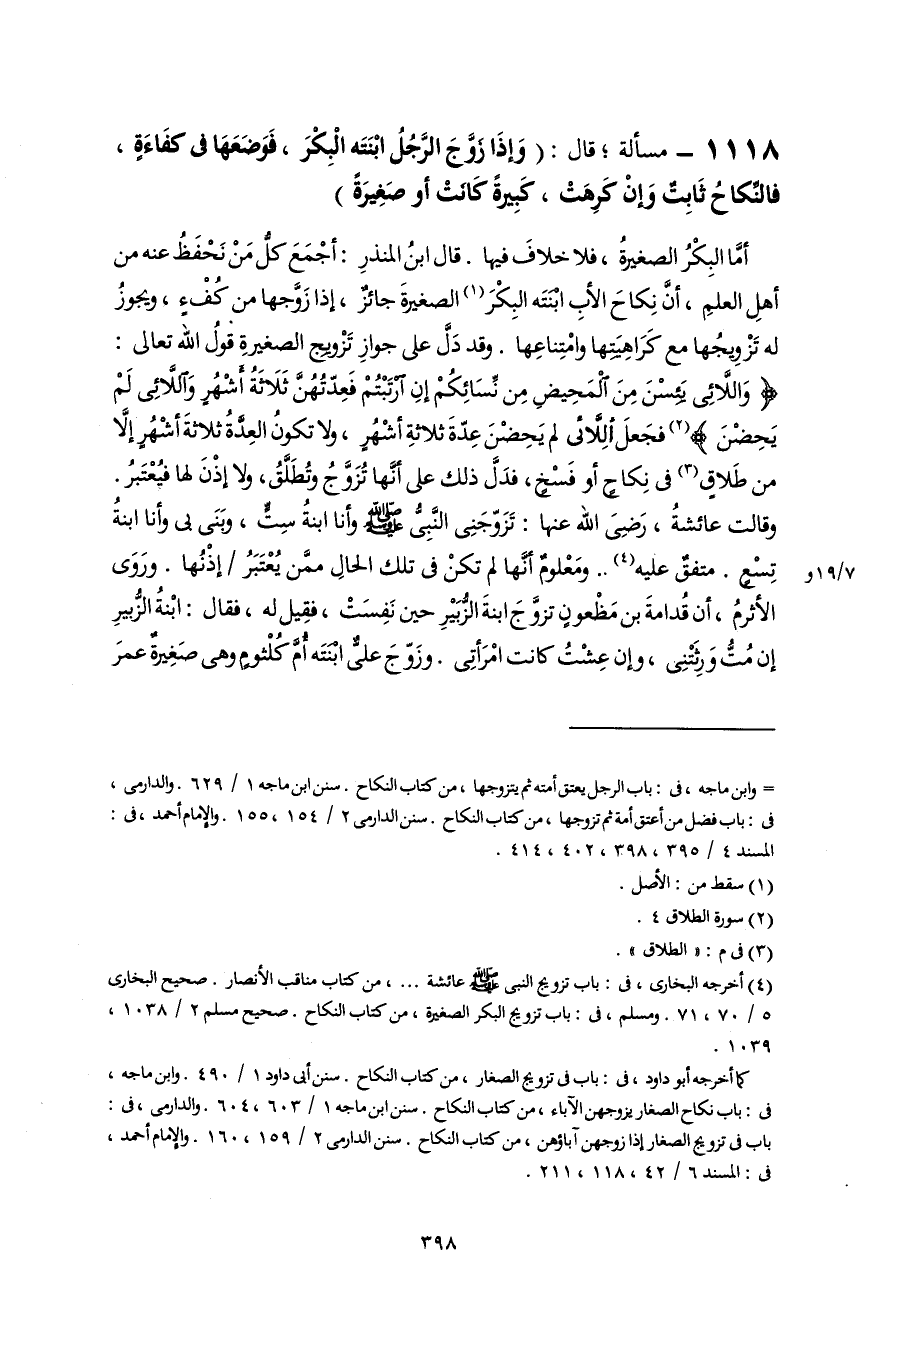 ١١١٨ – مسألة ؛ قال : ( وَإذَا زَوَّجَ الرَّجُلُ ابْنَتَه الْبِكْرَ ، فَوَضَعَهَا فى كفَاءَةٍ ،
فالنِّكاحُ ثَابِتٌ وَإنْ كَرِهَتْ ، كَبِيرةً كَانَتْ أو صَغِيرَةً )
أمَّا البِكْرُ الصغيرةُ ، فلا خلافَ فيها . قال ابنُ المنذرِ : أجْمَعَ كلُّ مَنْ نَحْفَظُ عنه من
أهلِ العلمِ ، أنَّ نِكاحَ الأبِ ابْنَتَه البِكْرَ(١) الصغيرةَ جائزٌ ، إذا زَوَّجها من كُفْءٍ ، ويجوزُ
له تَزْوِيجُها مع كَرَاهِيَتِها وامْتِناعِها . وقد دَلَّ على جوازِ تَزْوِيجِ الصغيرةِ قولُ الله تعالى :
﴿ وَاللَّائِى يَئِسْنَ مِنَ ٱلْمَحِيضِ مِن نِّسَائِكُمْ إنِ ٱرْتَبْتُمْ فَعِدَّتُهُنَّ ثَلَاثَةُ أَشْهُرٍ وَٱللَّائِى لَمْ
يَحِضْنَ ﴾(٢) فجَعلَ لِلَّائى لم يَحِضْنَ عِدّةَ ثلاثةِ أشْهُرٍ ، ولا تكونُ العِدَّةُ ثلاثةَ أشْهُرٍ إلَّا
من طَلَاقٍ(٣) فى نِكاحٍ أو فَسْخٍ ، فدَلَّ ذلك على أنَّها تُزَوَّجُ وتُطَلَّقُ ، ولا إذْنَ لها فيُعْتَبرُ .
وقالت عائشةُ ، رَضِىَ الله عنها : تَزَوّجَنِى النَّبِىُّ ﷺ وأنا ابنةُ سِتٍّ ، وبَنَى بى وأنا ابنةُ
تِسْعٍ . متفقٌ عليه(٤) .. ومَعْلومٌ أنَّها لم تكنْ فى تلك الحالِ ممَّن يُعْتَبَرُ / إذْنُها . ورَوَى
١٩/٧و
الأثرمُ ، أن قُدامةَ بن مَظْعونٍ تزوَّجَ ابنةَ الزُّبَيْرِ حين نَفِسَتْ ، فقِيل له ، فقال : ابْنةُ الزُّبيرِ
إن مُتُّ وَرِثَتْنِى ، وإن عِشْتُ كانت امْرَأتِى . وزَوّجَ علىٌّ ابْنَتَه أُمَّ كُلْثومٍ وهى صَغِيرةٌ عمرَ
= وابن ماجه ، فى : باب الرجل يعتق أمته ثم يتزوجها ، من كتاب النكاح . سنن ابن ماجه ١ / ٦٢٩ . والدارمى ،
فى : باب فضل من أعتق أمة ثم تزوجها ، من كتاب النكاح . سنن الدارمى ٢ / ١٥٤ ، ١٥٥ . والإمام أحمد ، فى :
المسند ٤ / ٣٩٥ ، ٣٩٨ ، ٤٠٢ ، ٤١٤ .
(١) سقط من : الأصل .
(٢) سورة الطلاق ٤ .
(٣) فى م : « الطلاق » .
(٤) أخرجه البخارى ، فى : باب تزويج النبى ﷺ عائشة ... ، من كتاب مناقب الأنصار . صحيح البخارى
٥ / ٧٠ ، ٧١ . ومسلم ، فى : باب تزويج البكر الصغيرة ، من كتاب النكاح . صحيح مسلم ٢ / ١٠٣٨ ،
١٠٣٩ .
كما أخرجه أبو داود ، فى : باب فى تزويج الصغار ، من كتاب النكاح . سنن أبى داود ١ / ٤٩٠ . وابن ماجه ،
فى : باب نكاح الصغار يزوجهن الآباء ، من كتاب النكاح . سنن ابن ماجه ١ / ٦٠٣ ، ٦٠٤ . والدارمى ، فى :
باب فى تزويج الصغار إذا زوجهن آباؤهن ، من كتاب النكاح . سنن الدارمى ٢ / ١٥٩ ، ١٦٠ . والإمام أحمد ،
فى : المسند ٦ / ٤٢ ، ١١٨ ، ٢١١ .
٣٩٨